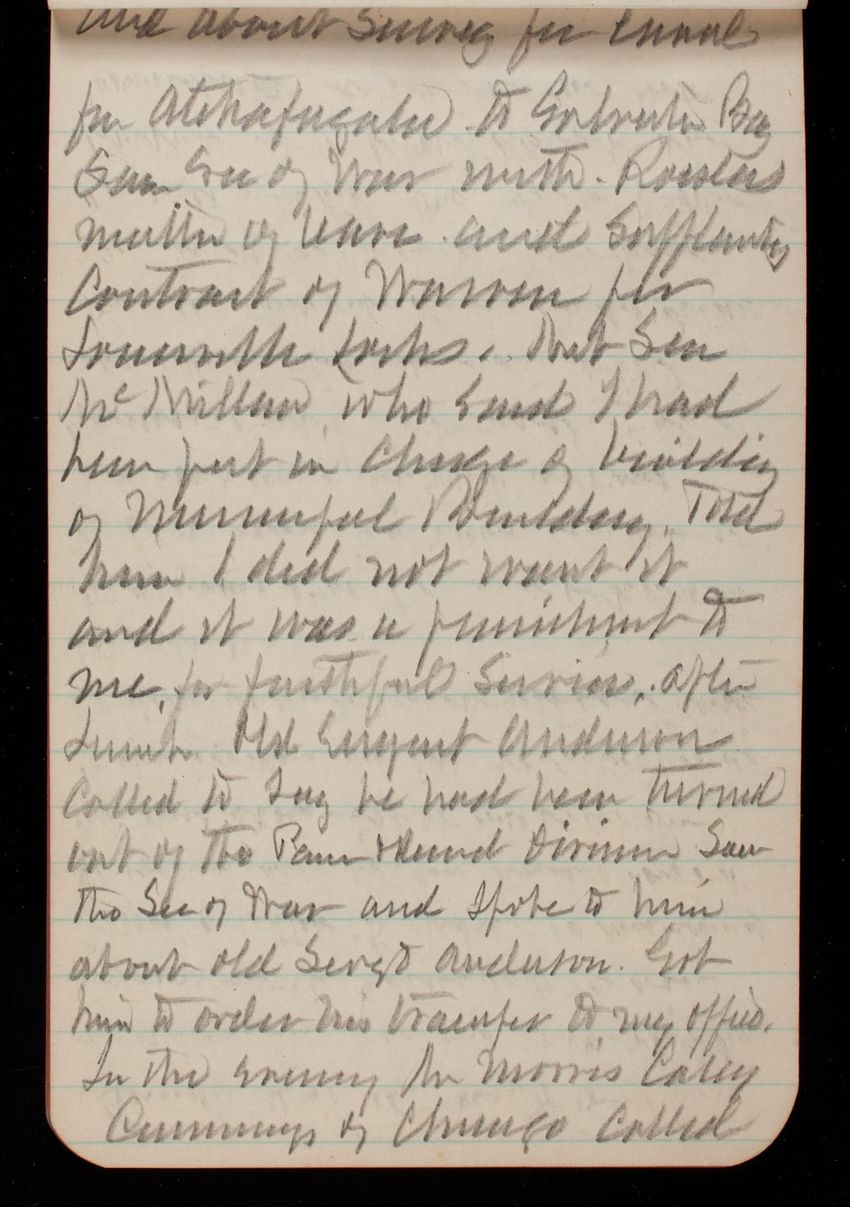 and about Survey for Canal
for Atchafagalia to Galveston Bay
Saw Sec of War with
matter of leave and
Contract of Warren for
Locks. Met Sen
McMillan who said I had
been put in Charge of building
of Municipal Building. Told
him I did not want it
and it was a punishment to
me, for faithful Service, after
Lunch Old Sergent Anderson
Called to Say he had been turned
out of the Division Saw
the Sec of War and Spoke to him
about old Sergt Anderson. Got
him to order his transfer to my office.
In the evening Mr Morris Casey
Cummings of Chicago Called